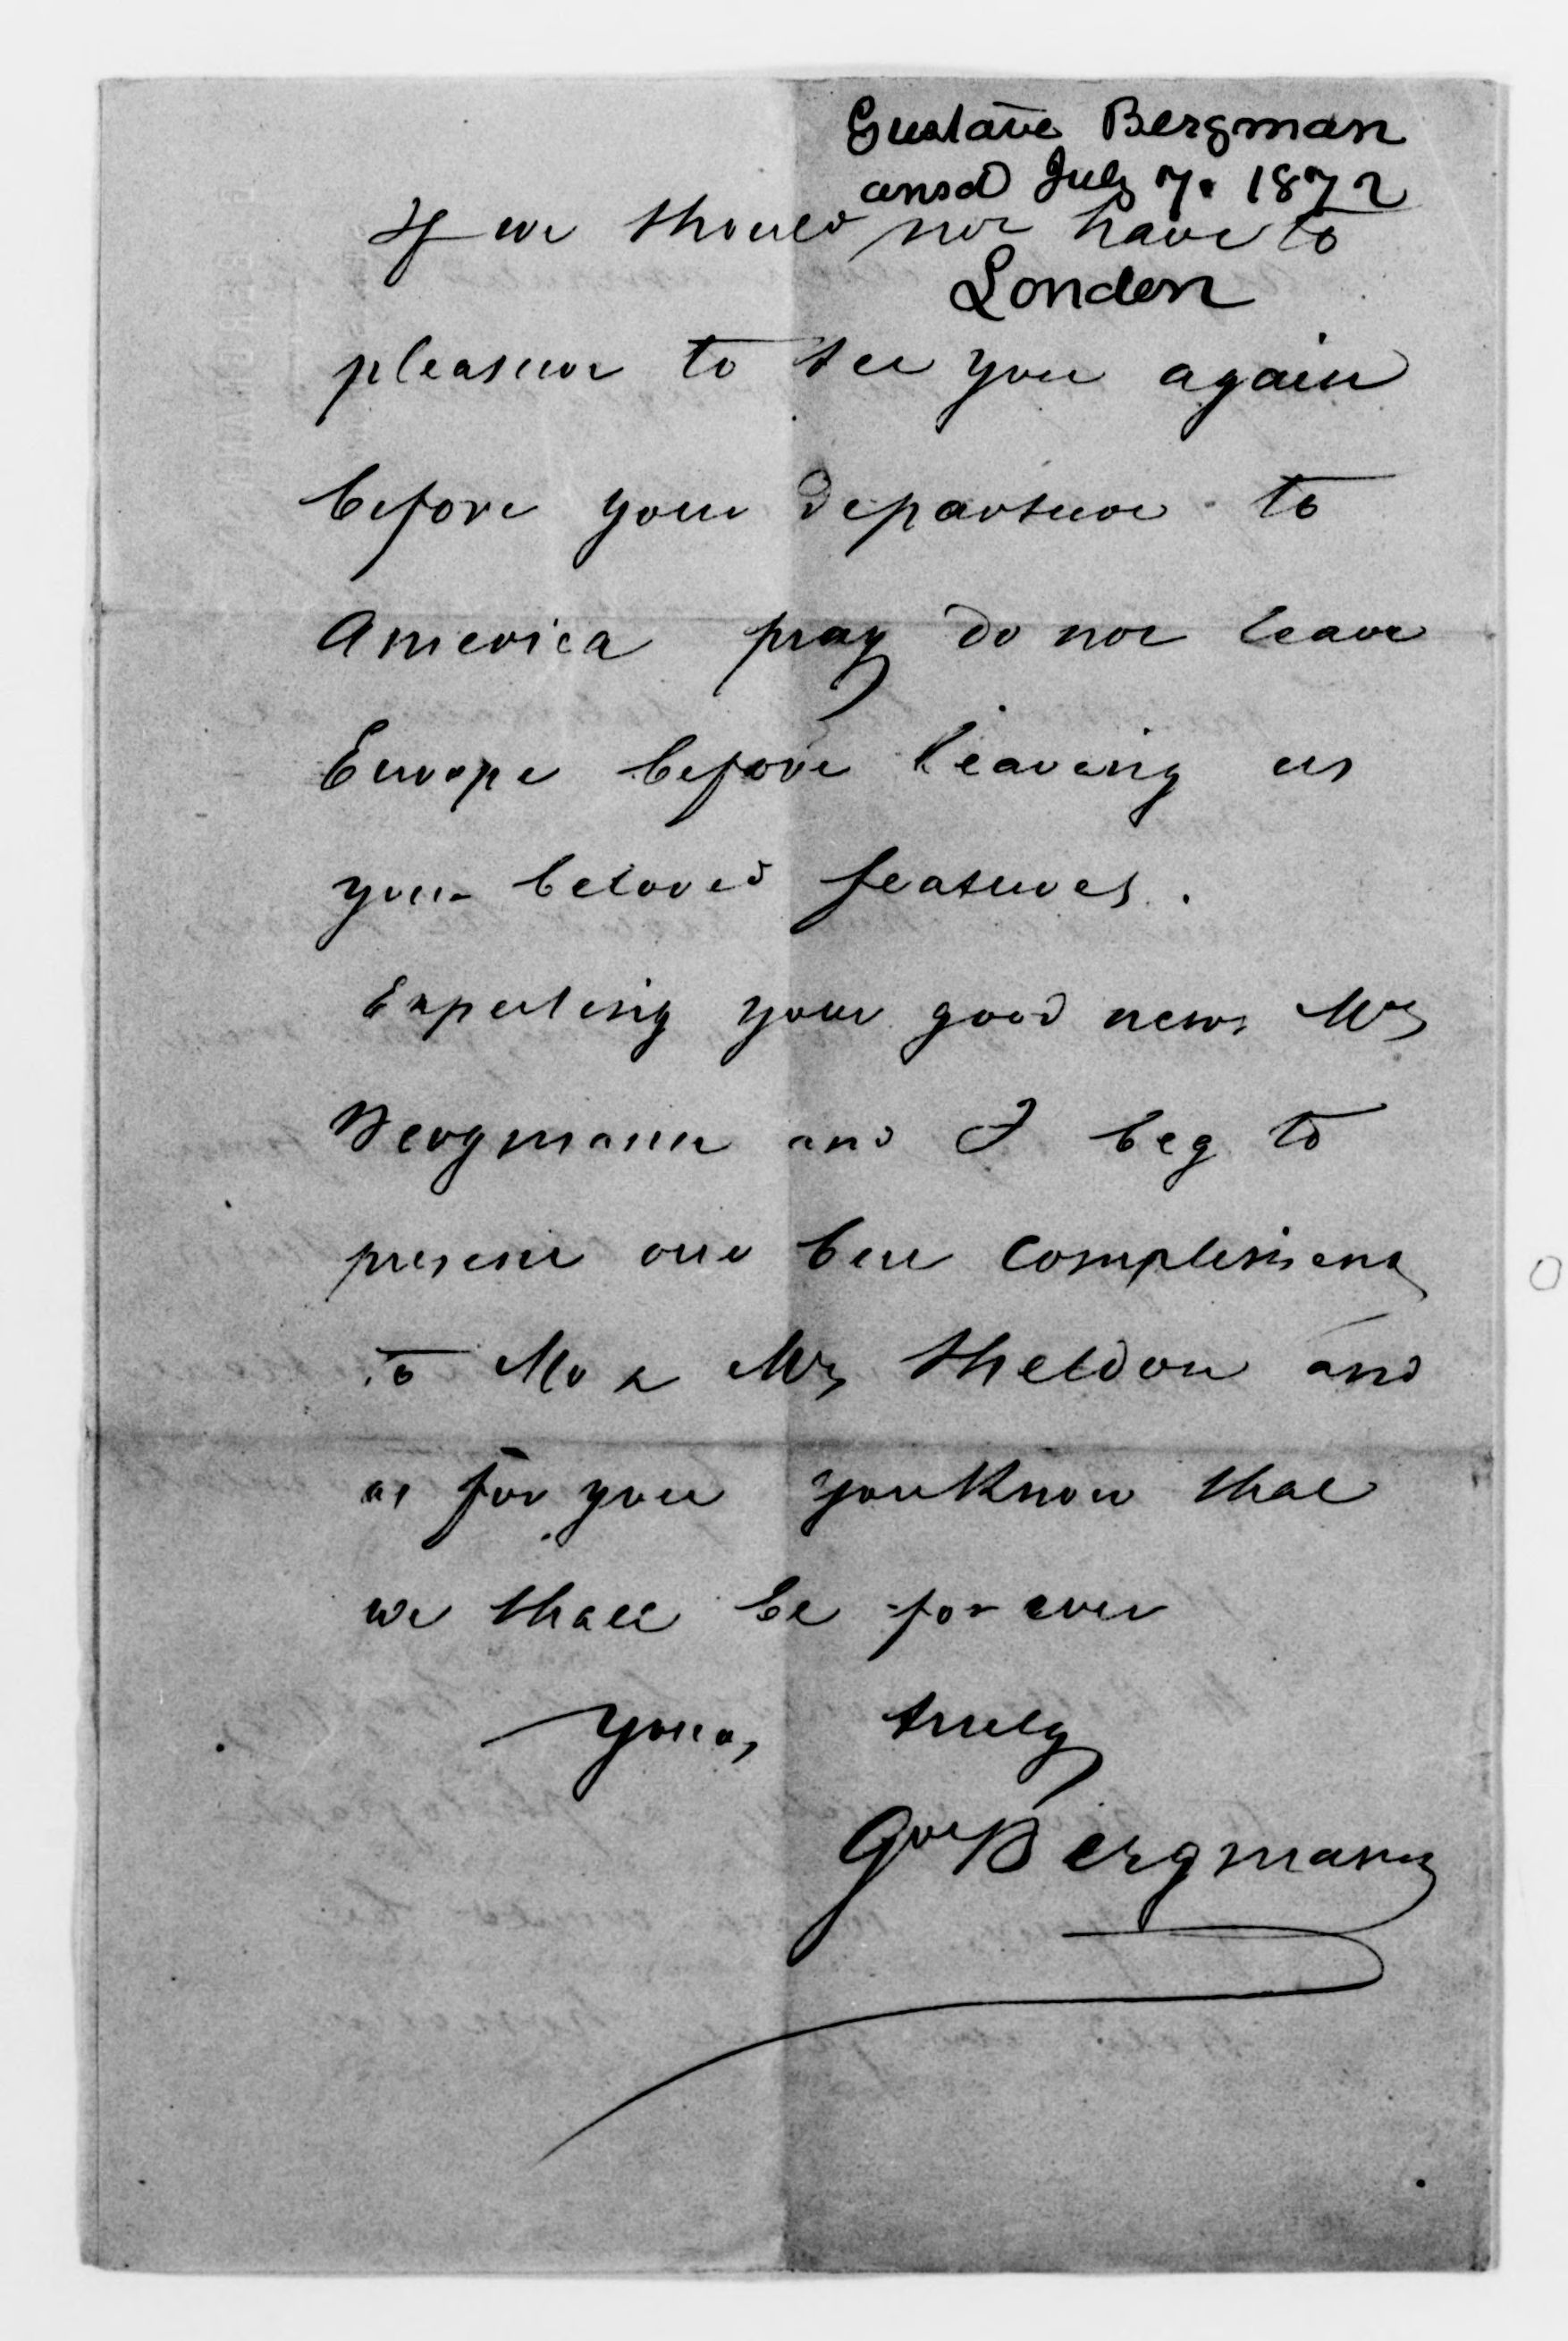 Gustave Bergman
ansd July 7. 1872
London
If we should not have to
pleasure to see you again
before your departure to
America pray do not leave
Europe before leaving us
your beloved features.
Expecting your good news Mrs
Bergmann and I beg to
present our best compliments
to Mr & Mrs Sheldon and
as for you you know that
we shall be for ever
Yours truly
Gve Bergmann